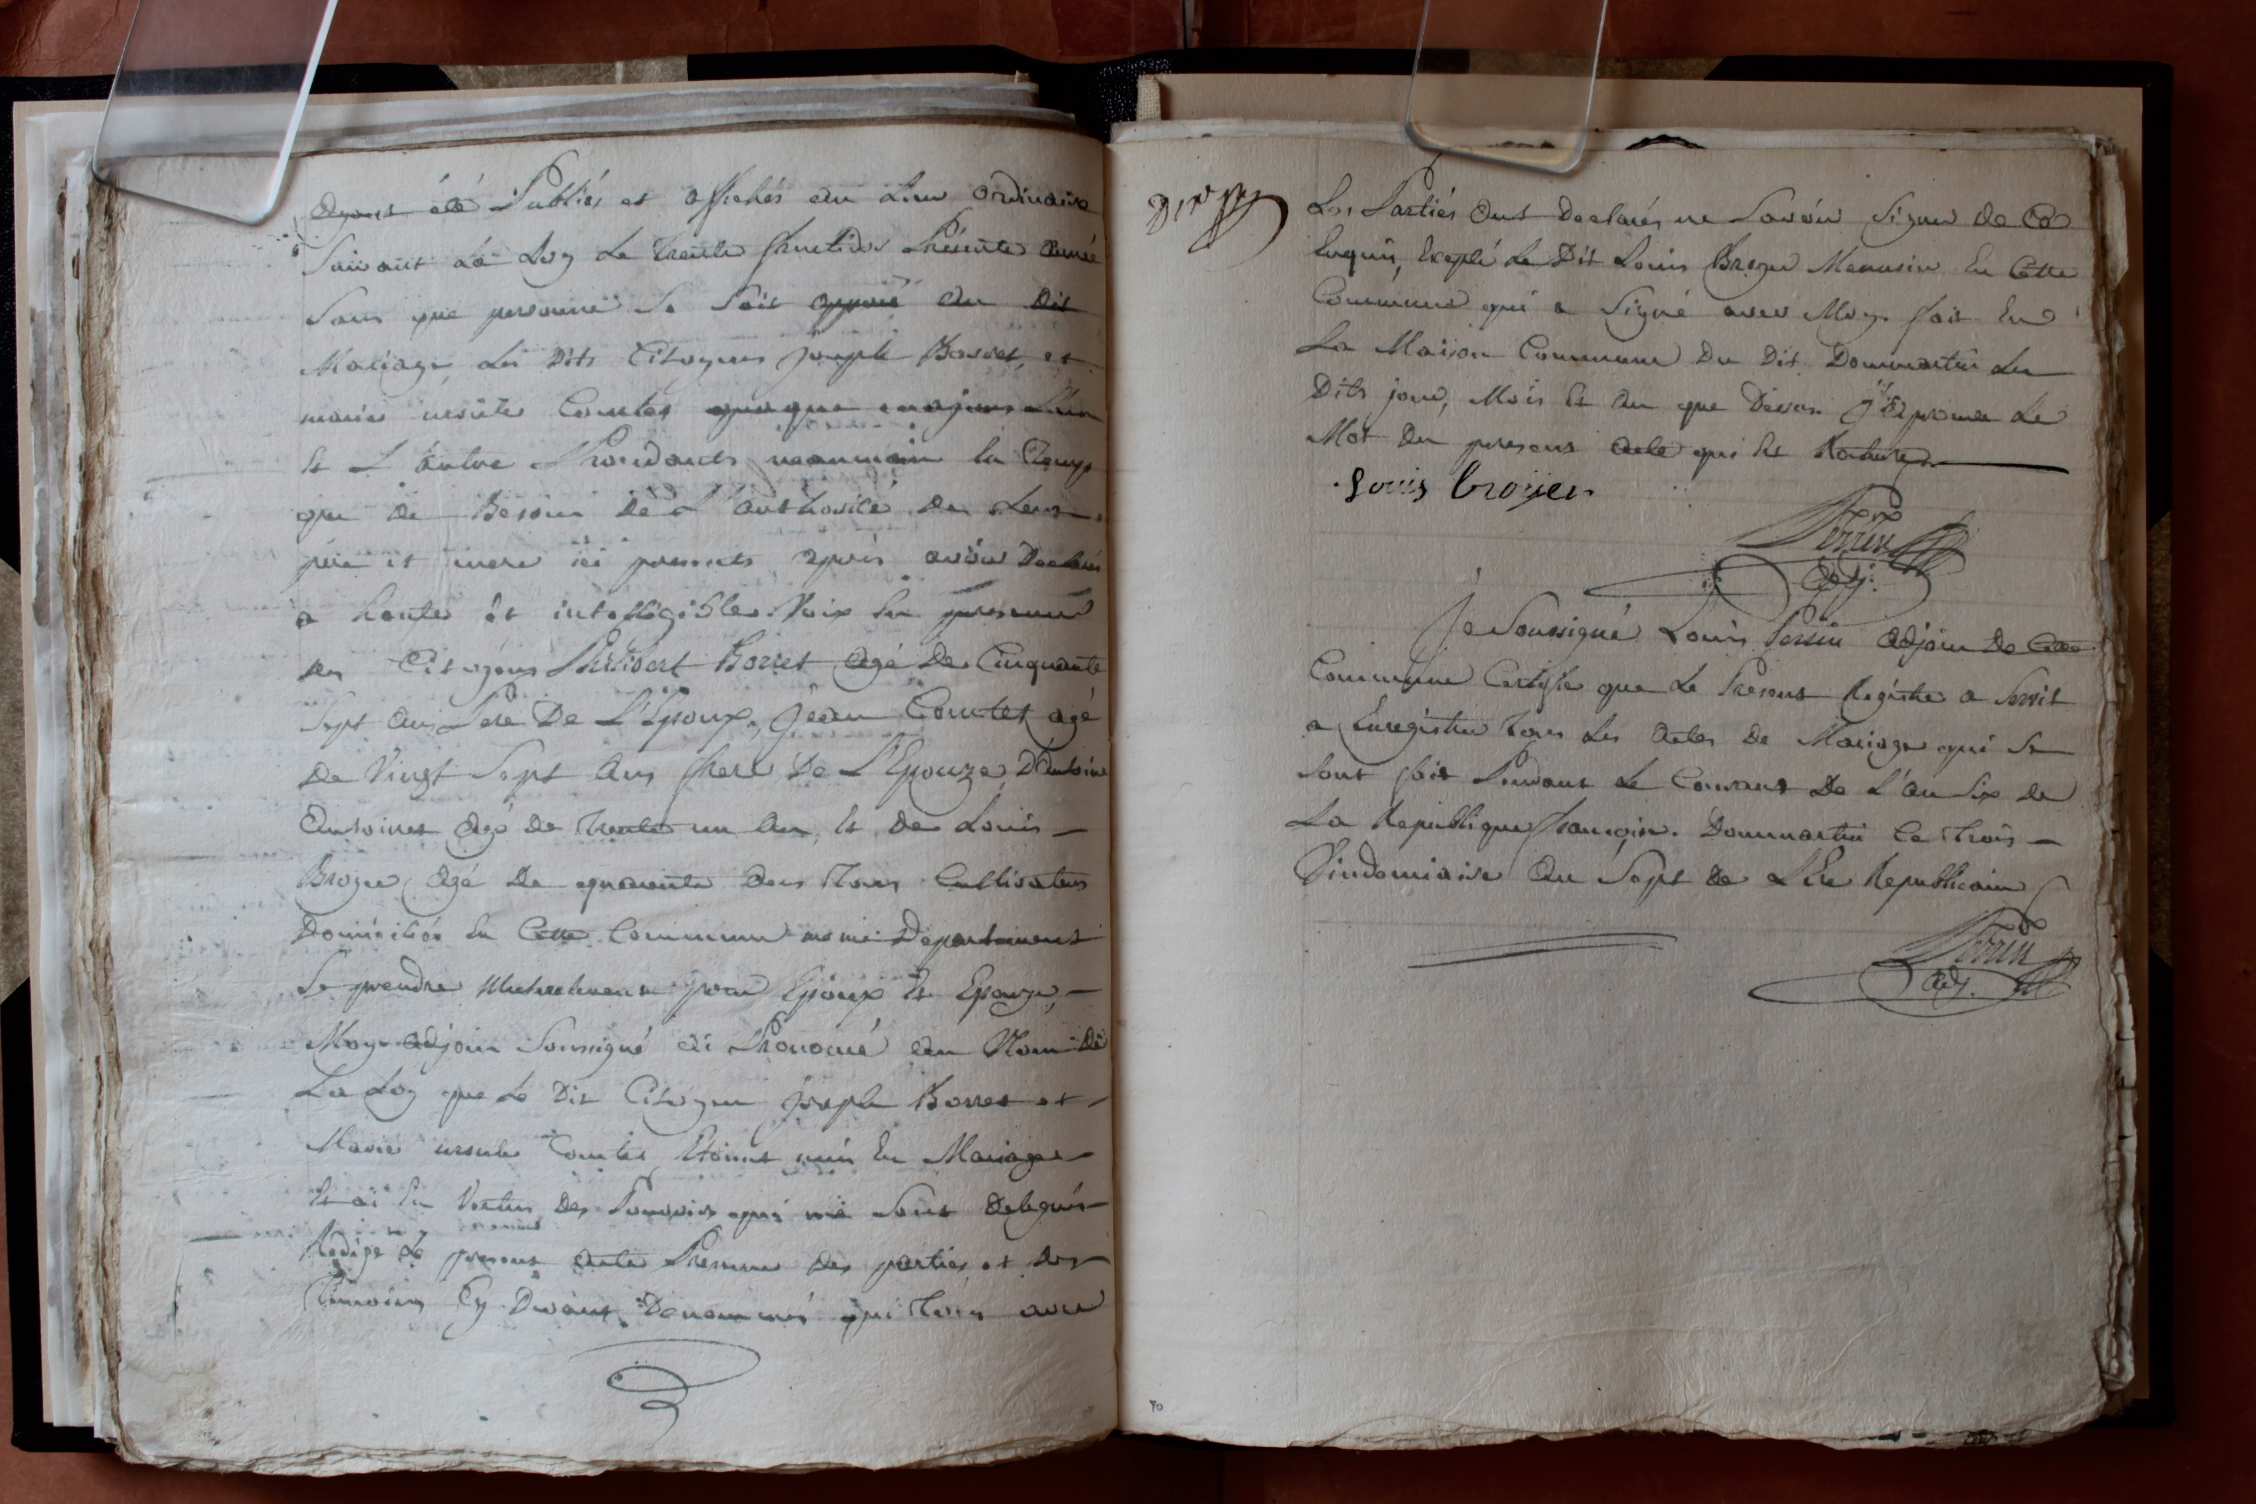 ayant été Publiés et affichés au Lieu ordinaire
Suivant La Loy Le trente fructidor Présente année
Sans que personne Se Soit opposé au Dit
Mariage, Les Dits Citoyens joseph Borret et
marie ursule Comtet quoque majeurs L'un
Et L'autre Procedants neanmoin En temps
que de Besoin De L'authorité De Leurs
pere et mere ici presents apres avoir Declarés
a haute et intelligible Voix En presence
des Citoyens Philibert Borret agé De Cinquante
Sept ans Pere De L'Epoux, Jean Comtet agé
De Vingt Sept Ans frere De L'Epouze, D'Antoine
Antoinet Agé De trente un An, Et De Louis
Broyer Agé De quarante Deux Tous Cultivateurs
Domiciliés En Cette Commune meme Departement
Se prendre Mutuelement pour Epoux Et Epouze,
Moy Adjoin Soussigné ai Prononcé Au Nom De
La Loy que Le Dit Citoyen joseph Borret et
Marie ursule Comtet Etoient unis En Mariage
Et ai En Vertus Des Pouvoirs qui me Sont Delegués
Redigé Le present Acte Presence Des parties et Des
Temoins Cy Devant Denommés qui Tous avec
Les Parties Ont Declarés ne Savoir Signer De Ce
Enquis, Excepté Le Dit Louis Broyer Menusier En Cette
Commune qui a Signé avec Moy. fait En
La Maison Commune Du Dit Dommartin Les
Dits jour, Mois Et An que Devan. J'approuve Le
Mot Du present Acte qui Est
Louis broijer
Perrin
Adj.
Je Soussigné Louis Perrin Adjoin De Cette
Commune Certifie que Le Present Registre a Servit
a Enregistrer Tous Les Actes De Mariage qui Se
Sont fait Pendant Le Courant De L'an Six De
La Republique françoise. Dommartin Ce Trois
Vindemiaire An Sept De L'Ere Republicaine
Perrin
Adj.
70